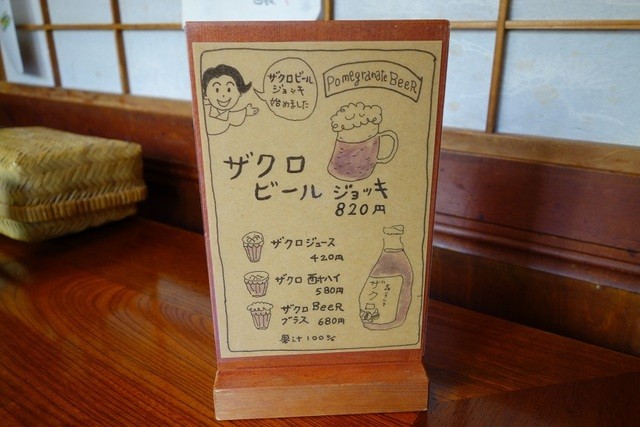 ザクロビール
ジョッキ
始めました
Pomegranate BeeR
ザクロ
ビール ジョッキ
820円
ザクロジュース
420円
ザクロ 酎ハイ
580円
ザクロ BeeR
グラス 680円
果汁100%
ザクロ